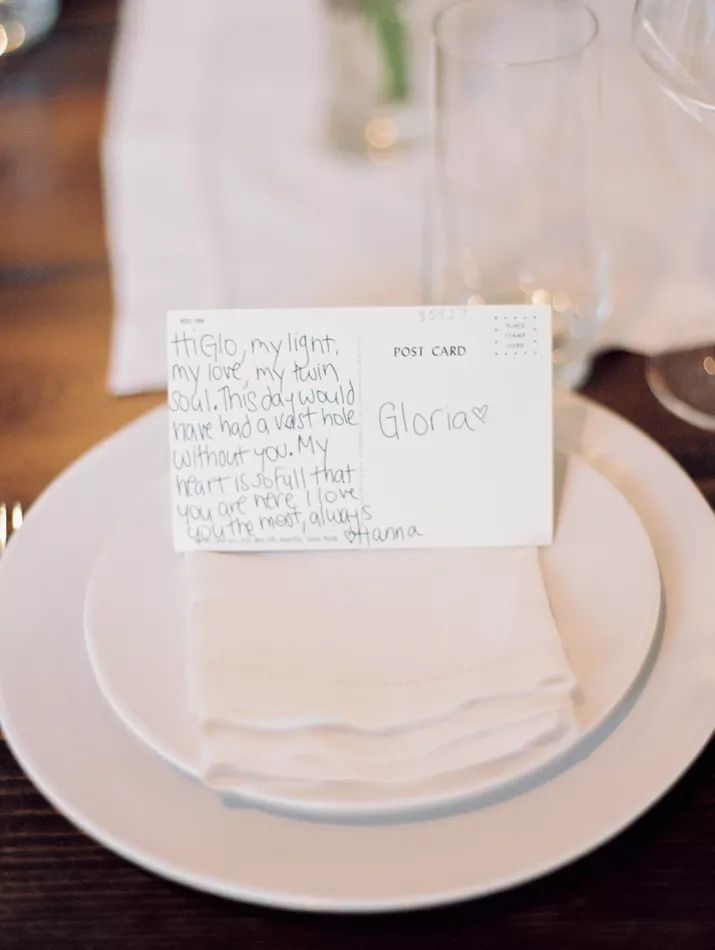 Hi Glo, my light,
my love, my twin
soul. This day would
have had a vast hole
without you. My
heart is so full that
you are here. I love
you the most, always
♡Hanna
POST CARD
PLACE
STAMP
HERE
Gloria♡